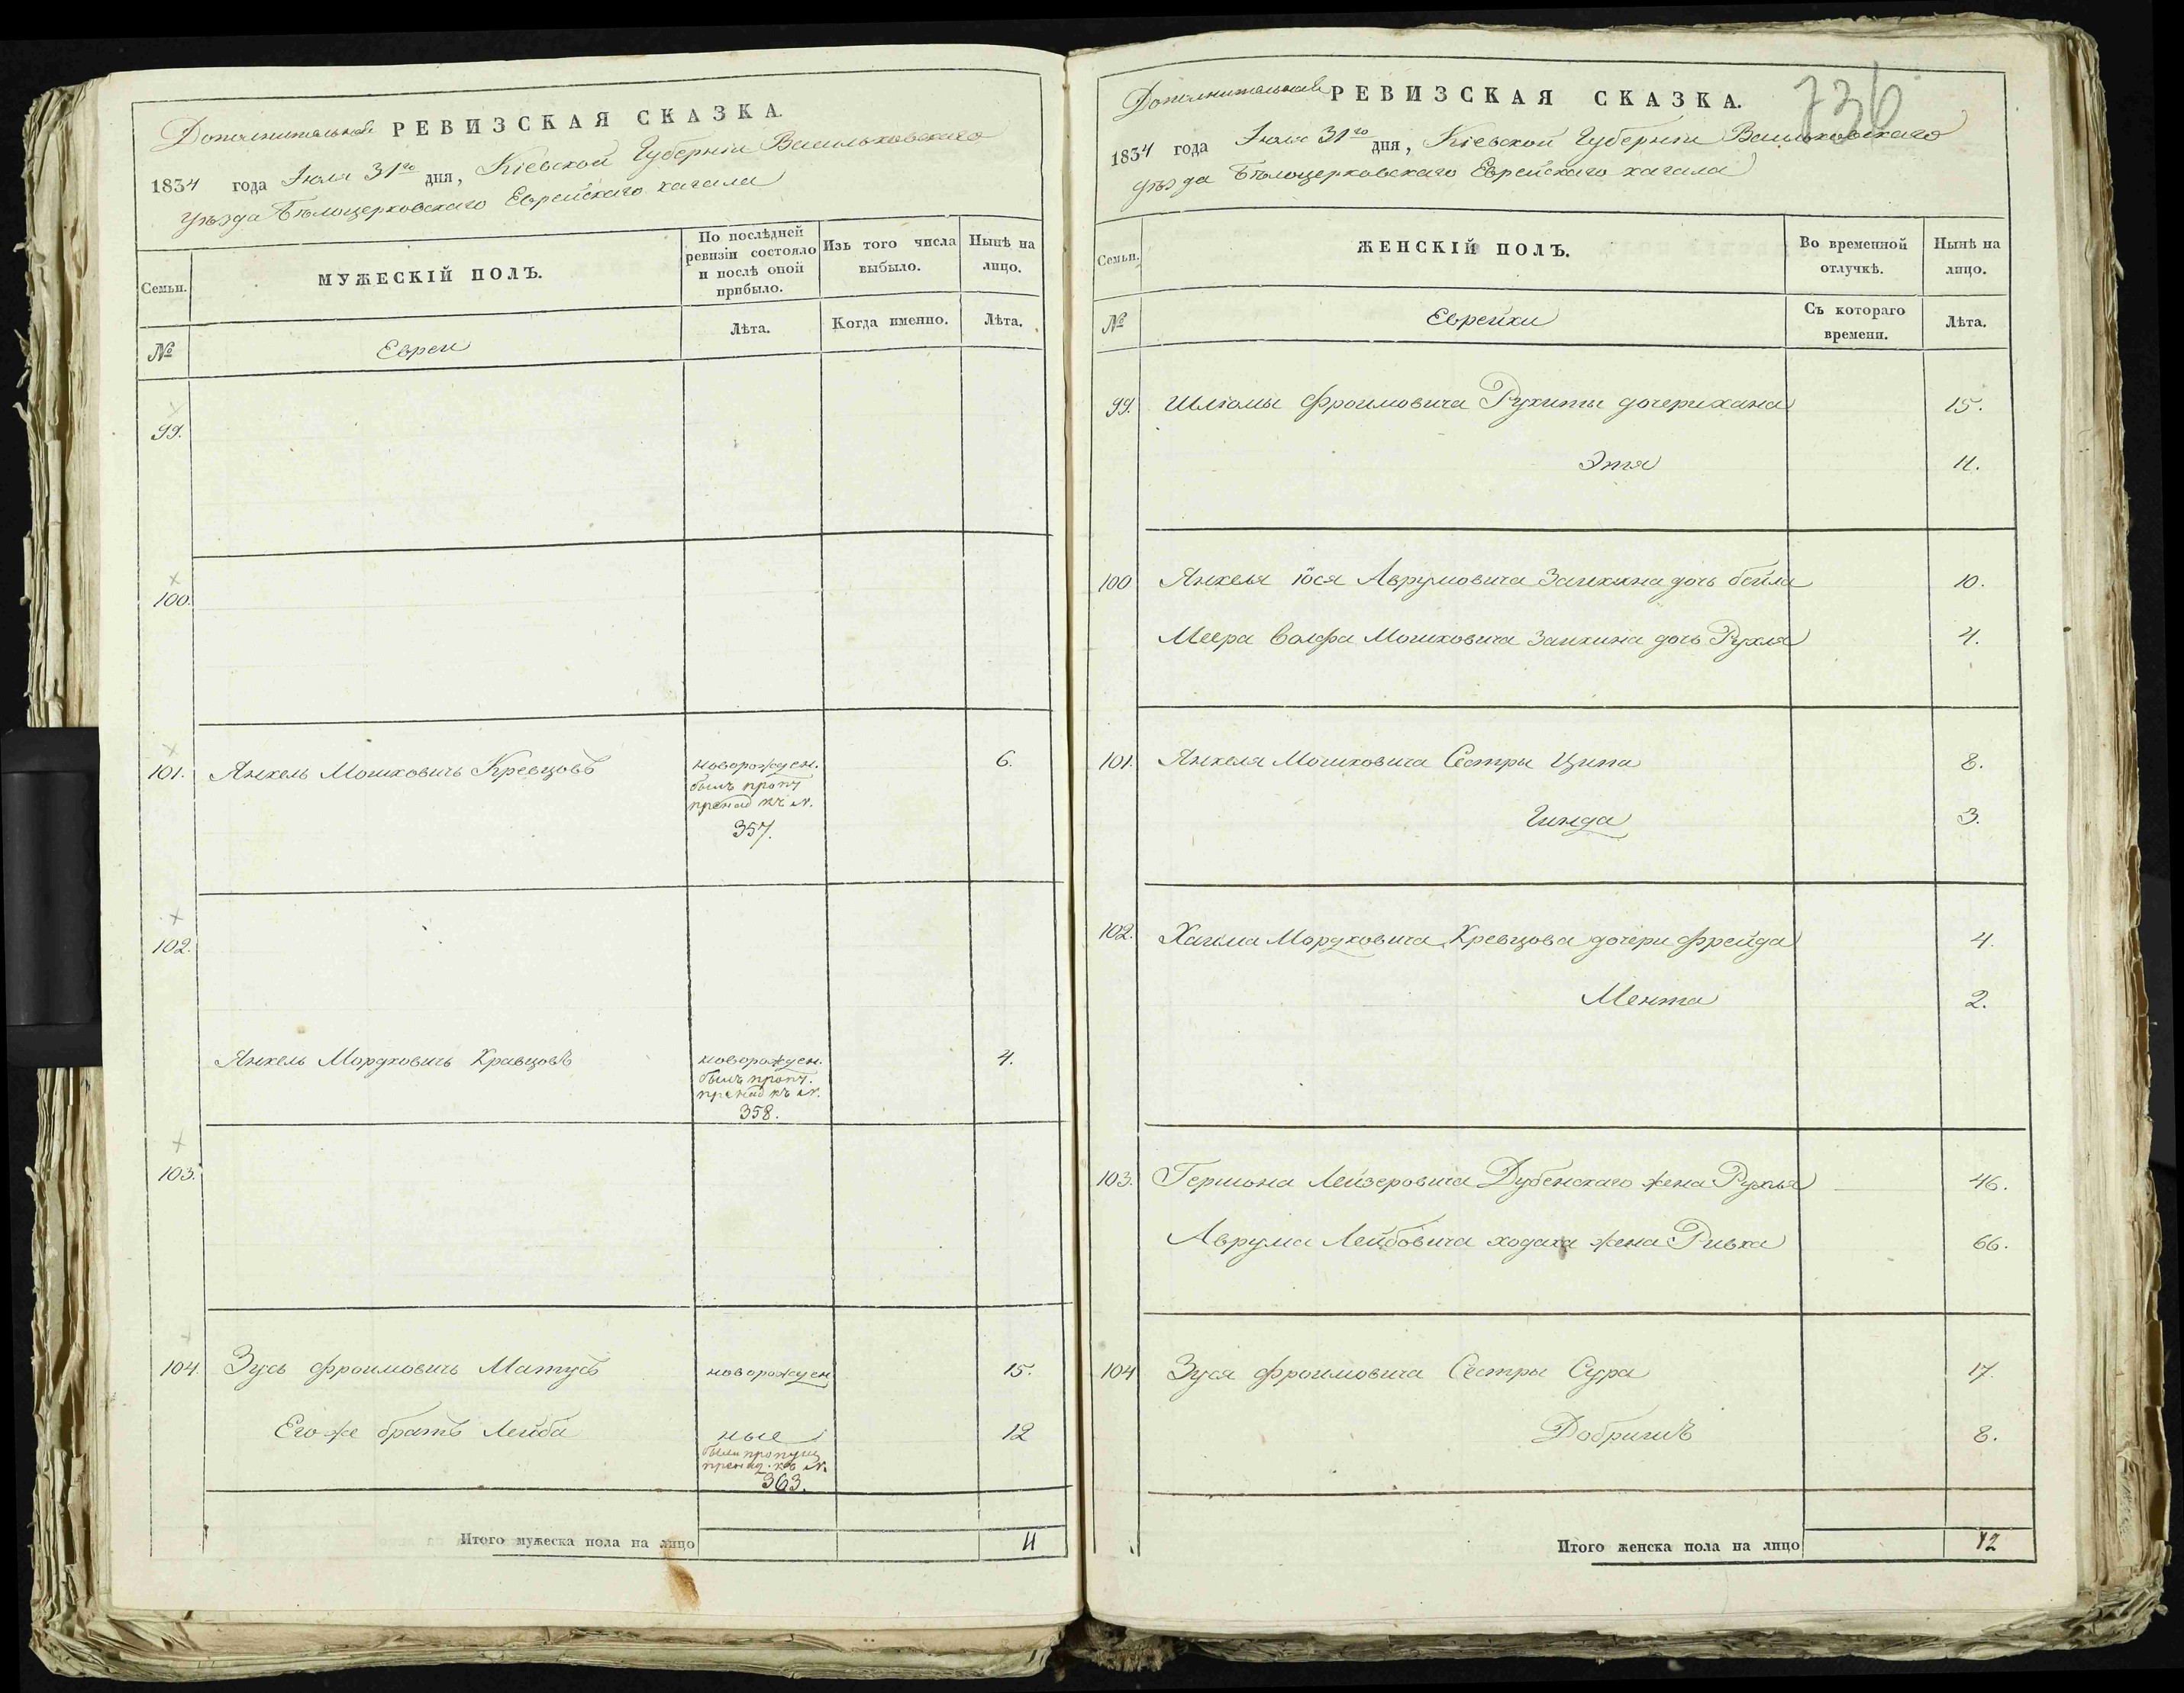 Дополнительная РЕВИЗСКАЯ СКАЗКА.
1834 года Іюля 31го дня, Кіевской Губерніи Васильковскаго
уѣзда Бѣлоцерковскаго Еврейскаго кагала
Семьи.
МУЖЕСКІЙ ПОЛЪ.
По послѣдней
ревизіи состояло
и послѣ оной
прибыло.
Изъ того числа
выбыло.
Нынѣ на
лицо.
№
Евреи
Лѣта.
Когда именно.
Лѣта.
99.
100.
101. Янкель Мошковичъ Кревцовъ новорожден. 6.
былъ проп
пренад къ №.
357.
102.
Янкель Мордковичъ Кравцовъ новорожден. 4.
былъ проп.
пренад къ №.
358.
103.
104. Зусь Фроимовичъ Матусъ новорожден 15.
Его же братъ Лейба ные 12
были пропущ
пренад. къ №.
363.
Итого мужеска пола на лицо 4
Дополнительная РЕВИЗСКАЯ СКАЗКА.
736
1834 года Іюля 31го дня, Кіевской Губерніи Васильковскаго
уѣзда Бѣлоцерковскаго Еврейскаго кагала
Семьи.
ЖЕНСКІЙ ПОЛЪ.
Во временной
отлучкѣ.
Нынѣ на
лицо.
№
Еврейки
Съ котораго
времени.
Лѣта.
99. Шліомы Фроимовича Рухиты дочери хана 15.
Этя 11.
100 Янкеля Іося Аврумовича Заикина дочь бейла 10.
Меера Волфа Мошковича Заикина дочь Рухля 4.
101. Янкеля Мошковича Сестры Ципа 8.
Гинда 3.
102. Хаима Мордковича Кревцова дочери Фрейда 4.
Мента 2.
103. Гершона Лейзеровича Дубенскаго жена Рухля 46.
Аврума Лейбовича ходака жена Ривка 66.
104 Зуся Фроимовича Сестры Сура 17.
Добришъ 8.
Итого женска пола на лицо 12